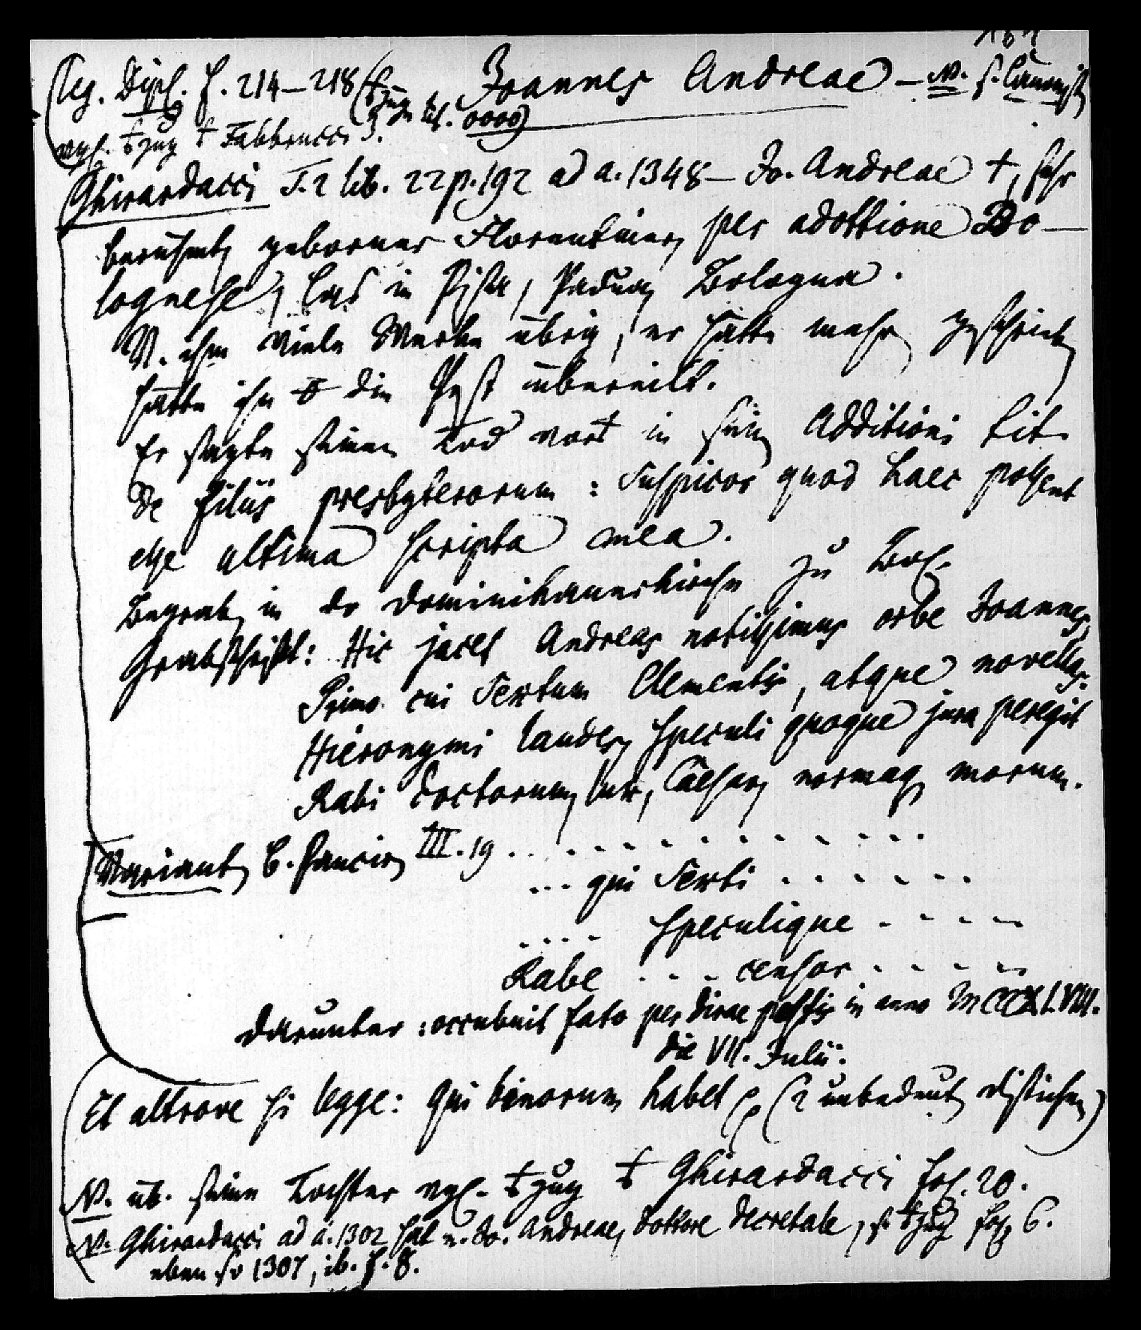 Reg. Dipl. f. 214–218 Joannes Andreae – N. s. Canonist
vgl. Fabbrucci 3. lit. oooo)
Ghirardacci T. 2 lib. 22 p. 192 ad a. 1348 – Jo. Andreae †, sehr
berühmt, geborner Florentiner, per adottione Bo-
lognese, las in Pisa, Padua, Bologna.
V. ihm viele Werke übrig, er hätte mehr geschrieben,
hätte ihn die Pest übereilt.
Er sagte seinen Tod vor in sein Additioni tit.
de filiis presbyterorum: Suspicor quod haec possent
esse ultima scripta mea.
Begrab. in der Dominikanerkirche zu Bol.
Grabschrift: Hic jacet Andreas notissimus orbe Joannes,
Primo cui Sextum Clementis, atque novellas.
Hieronymi laudes, Speculi quoque jura peregit
Rabi doctorum, lux, Caesar, normaque morum.
Variant, b. Panciro III. 19 . . . . . . . . . . . . .
... qui Sexti . . . . . .
.... Speculique . . . . .
Rabe . . . censor . . . . .
darunter: occubuit fato per dirae pestis in anno MCCCXLVIII.
die VII. Julii.
Et altrove si legge: Qui bonorum habet (2 unbedeut. distichen)
N. üb. seine Tochter vgl. Ghirardacci fol. 20.
N. Ghirardacci ad a. 1302 hat v. Jo. Andreae, dottore Decretale, s. fol. 6.
eben so 1307, ib. f. 8.